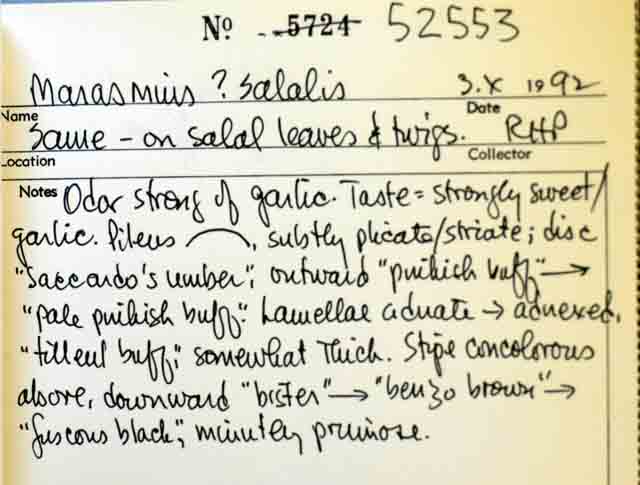 Nº 5724 52553
Marasmius ? salalis 3.X 1992
Name Date
Same - on salal leaves & twigs. RHP
Location Collector
Notes Odor strong of garlic. Taste = strongly sweet/
garlic. Pileus ⌒, subtly plicate/striate; disc
"Saccardo's umber"; outward "pinkish buff" →
"pale pinkish buff". Lamellae adnate → adnexed,
"tilleul buff;" somewhat thick. Stipe concolorous
above, downward "bister" → "benzo brown" →
"fuscous black"; minutely pruinose.